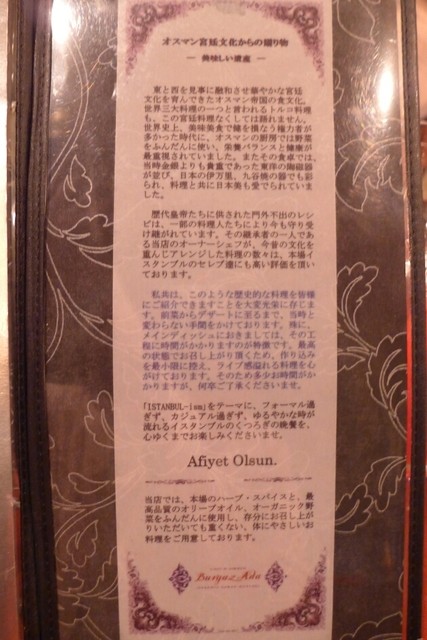 オスマン宮廷文化からの贈り物
― 美味しい遺産 ―
東と西を見事に融和させ華やかな宮廷
文化を育んできたオスマン帝国の食文化。
世界三大料理の一つと言われるトルコ料理
も、この宮廷料理なくしては語れません。
世界史上、美味美食で健を損なう権力者が
多かった時代に、オスマンの厨房では野菜
をふんだんに使い、栄養バランスと健康が
最重視されていました。またその食卓では、
当時金銀よりも貴重であった東洋の陶磁器
が並び、日本の伊万里、九谷焼の器でも彩
られ、料理と共に日本美も愛でられていま
した。
歴代皇帝たちに供された門外不出のレシ
ピは、一部の料理人たちにより今も守り受
け継がれています。その継承者の一人であ
る当店のオーナーシェフが、今昔の文化を
重んじアレンジした料理の数々は、本場イ
スタンブルのセレブ達にも高い評価を頂い
ております。
私共は、このような歴史的な料理を皆様
にご紹介できますことを大変光栄に存じま
す。前菜からデザートに至るまで、当時と
変わらない手間をかけております。殊に、
メインディッシュにおきましては、その工
程に時間がかかりますのが特徴です。最高
の状態でお召し上がり頂くため、作り込み
を最小限に控え、ライブ感溢れる料理を心
がけております。そのため多少お時間がか
かりますが、何卒ご了承くださいませ。
「ISTANBUL-ism」をテーマに、フォーマル過
ぎず、カジュアル過ぎず、ゆるやかな時が
流れるイスタンブルのくつろぎの晩餐を、
心ゆくまでお楽しみくださいませ。
Afiyet Olsun.
当店では、本場のハーブ・スパイスと、最
高品質のオリーブオイル、オーガニック野
菜をふんだんに使用し、存分にお召し上が
りいただいても重くない、体にやさしいお
料理をご用意しております。
Burgaz Ada